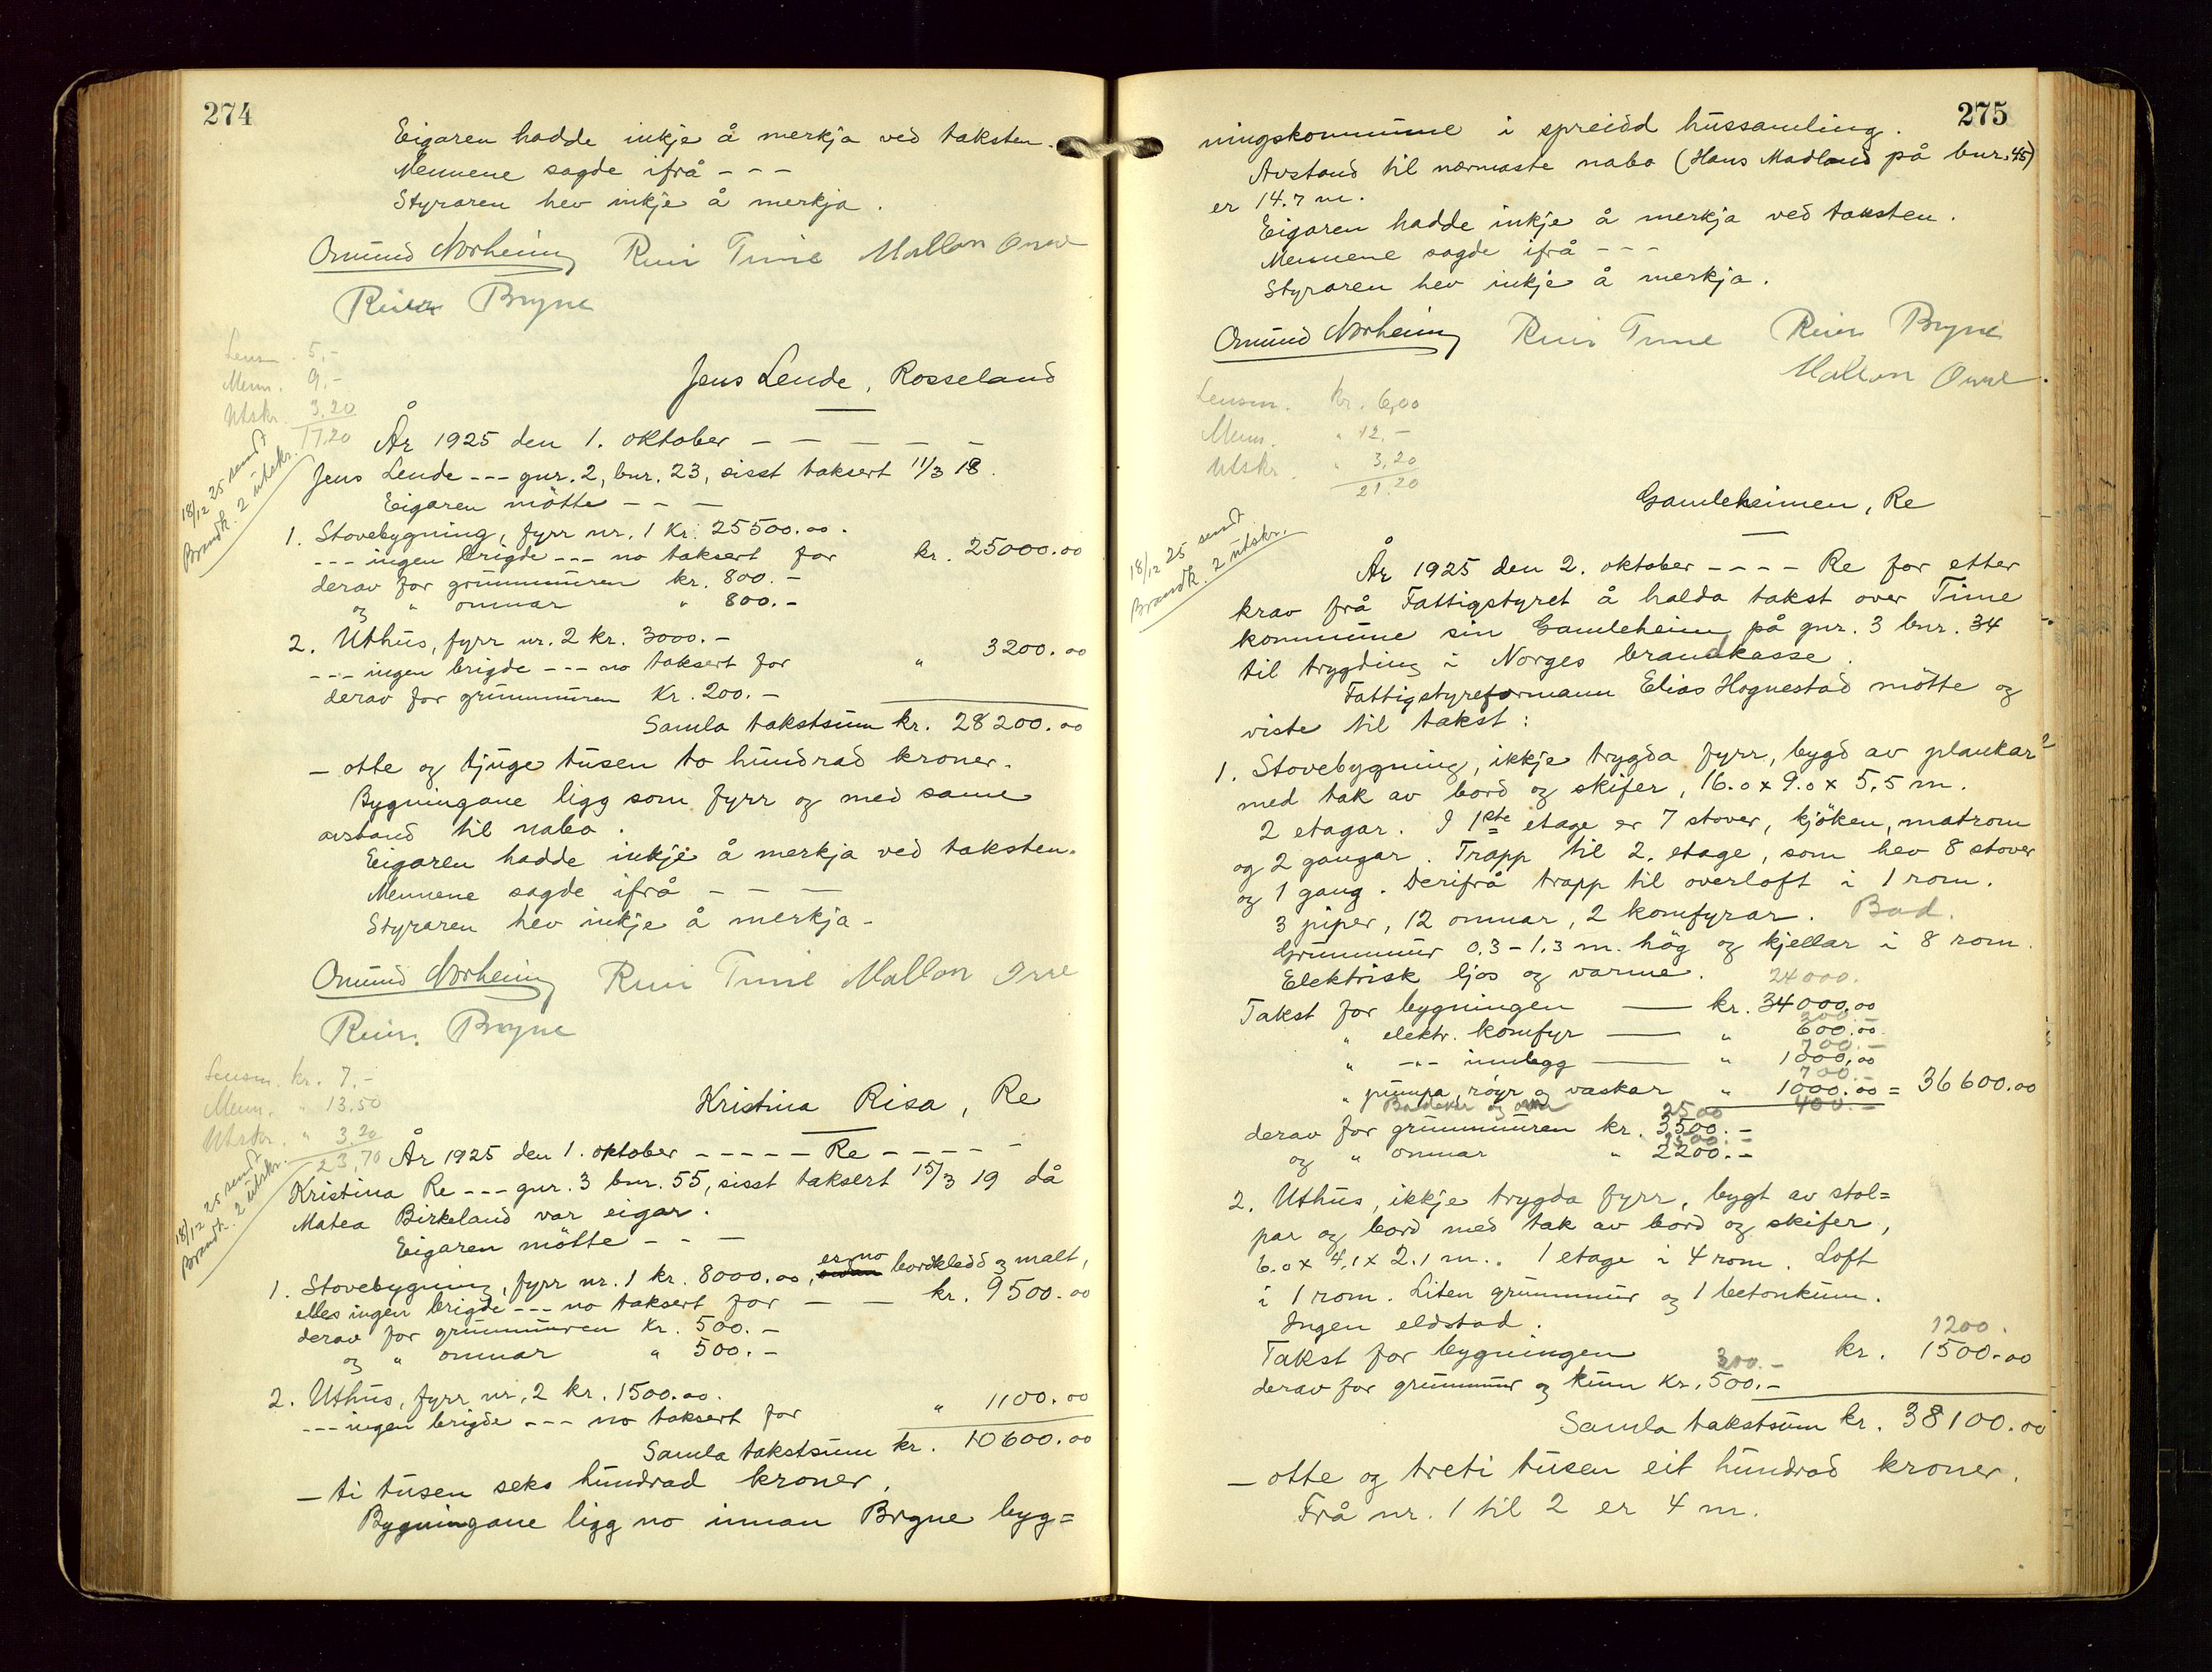 274
Eigaren hadde inkje å merkja ved taksten.
Mennene sagde ifrå - - -
Styraren hev inkje å merkja.
Omund Norheim Reier Time
Reier Bryne
Lensm. 5,-
Menn. 9,-
Utskr. 3,20
17,20
18/12 25 send
Brandk. 2 utskr.
Jens Lende, Rosseland
År 1925 den 1. oktober — — — — —
Jens Lende --- gnr. 2, bnr. 23, sisst taksert 11/3 18.
Eigaren mötte - - -
1. Stovebygning, fyrr nr. 1 kr. 25500.00.
--- ingen brigde --- no taksert for kr. 25000.00
derav for grunnmuren kr. 800.-
og " omnar " 800.-
2. Uthus, fyrr nr. 2 kr. 3000.-
--- ingen brigde --- no taksert for " 3200.00
derav for grunnmuren kr. 200.-
Samla takstsum kr. 28200.00
— otte og tjuge tusen to hundrad kroner.
Bygningane ligg som fyrr og med same
avstand til nabo.
Eigaren hadde inkje å merkja ved taksten.
Mennene sagde ifrå - - -
Styraren hev inkje å merkja -
Omund Norheim Reier Time
Reier Bryne
Lensm. kr. 7,-
Menn. " 13,50
Utskr. " 3,20
23,70
18/12 25 send
Brandk. 2 utskr.
Kristina Risa, Re
År 1925 den 1. oktober - - - - - Re - - - - -
Kristina Re --- gnr. 3 bnr. 55, sisst taksert 15/3 19 då
Matea Birkeland var eigar.
Eigaren mötte - - -
er no
1. Stovebygning, fyrr nr. 1 kr. 8000.00, bordkledd og malt,
elles ingen brigde --- no taksert for — — kr. 9500.00
derav for grunnmuren kr. 500.-
og " omnar " 500.-
2. Uthus, fyrr nr. 2 kr. 1500.00.
--- ingen brigde --- no taksert for " 1100.00
Samla takstsum kr. 10600.00
— ti tusen seks hundrad kroner.
Bygningane ligg no innan Bryne byg=
275
ningskommune i spreidd hussamling.
Avstand til nærmaste nabo (Hans Madland på bnr. 45)
er 14.7 m.
Eigaren hadde inkje å merkja ved taksten.
Mennene sagde ifrå - - -
Styraren hev inkje å merkja.
Omund Norheim Reier Time Reier Bryne
Lensm. kr. 6,00
Menn. " 12,-
Utskr. " 3,20
21,20
18/12 25 send
Brandk. 2 utskr.
Gamleheimen, Re
År 1925 den 2. oktober - - - - Re for etter
krav frå Fattigstyret å halda takst over Time
kommune sin Gamleheim på gnr. 3 bnr. 34
til trygding i Norges brannkasse.
Fattigstyreformann Elias Hognestad mötte og
viste til takst:
1. Stovebygning, ikkje trygda fyrr, bygd av plankar
med tak av bord og skifer, 16.0 x 9.0 x 5,5 m.
2 etagar. I 1ste etage er 7 stover, kjöken, matrom
og 2 gangar. Trapp til 2. etage, som hev 8 stover
og 1 gang. Derifrå trapp til overloft i 1 rom.
3 piper, 12 omnar, 2 komfyrar. Bad.
Grunnmur 0.3 - 1.3 m. hög og kjellar i 8 rom.
Elektrisk ljos og varme. 24000.
Takst for bygningen — kr. 34000.00
300.-
" elektr. komfyr — " 600.00
700.-
" -"- innlegg — " 1000,00
700.-
" pumpa, röyr og vaskar " 1000.00 = 36600.00
Badekar og omn 400.-
2500
derav for grunnmuren kr. 3500.-
1500.-
og " omnar " 2200.-
2. Uthus, ikkje trygda fyrr, bygt av stol=
par og bord med tak av bord og skifer,
6.0 x 4,1 x 2.1 m. 1 etage i 4 rom. Loft
i 1 rom. Liten grunnmur og 1 betonkum.
Ingen eldstad.
1200.
Takst for bygningen kr. 1500.00
300.-
derav for grunnmur og kum kr. 500.-
Samla takstsum kr. 38100.00
— otte og treti tusen eit hundrad kroner.
Frå nr. 1 til 2 er 4 m.